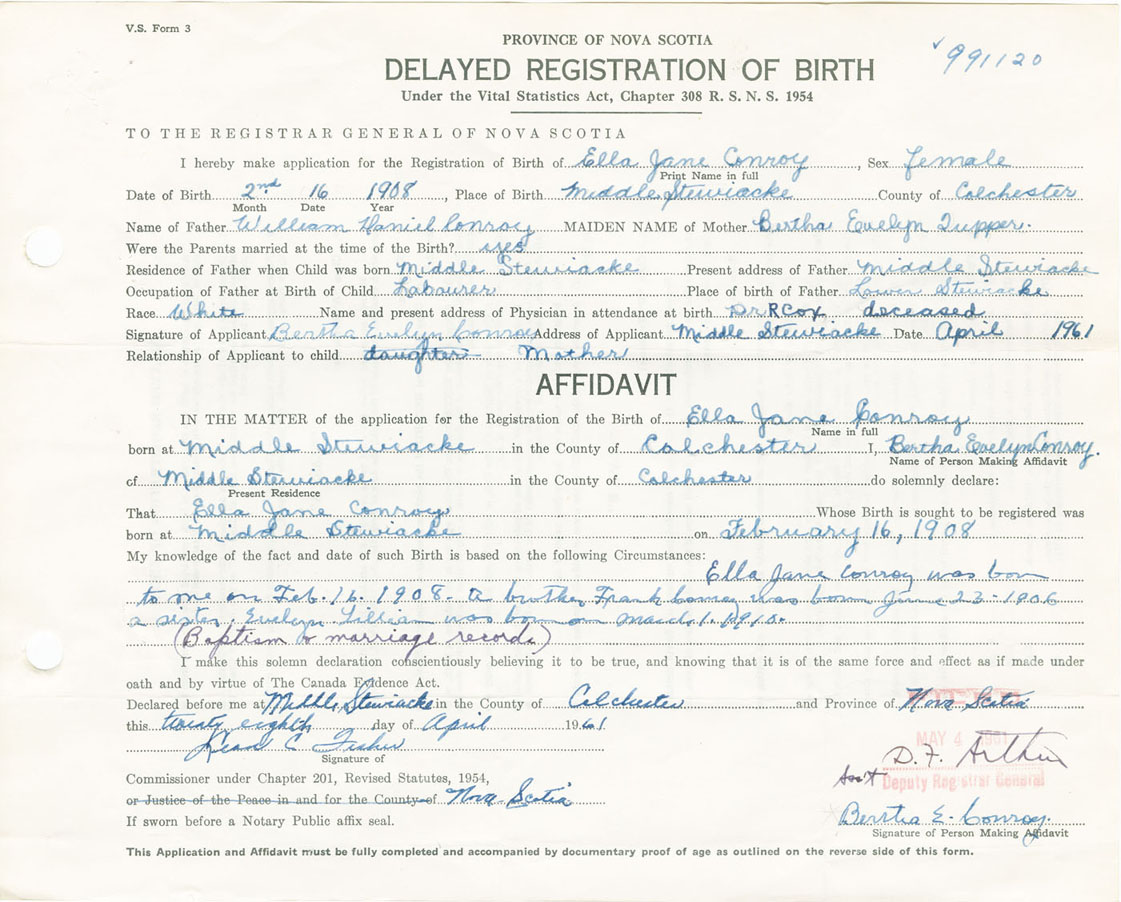 V.S. Form 3
PROVINCE OF NOVA SCOTIA
991120
DELAYED REGISTRATION OF BIRTH
Under the Vital Statistics Act, Chapter 308 R. S. N. S. 1954
TO THE REGISTRAR GENERAL OF NOVA SCOTIA
I hereby make application for the Registration of Birth of Ella Jane Conroy, Sex female
Print Name in full
Date of Birth 2nd 16 1908, Place of Birth Middle Stewiacke County of Colchester
Month Date Year
Name of Father William Daniel Conroy MAIDEN NAME of Mother Bertha Evelyn Tupper.
Were the Parents married at the time of the Birth? yes
Residence of Father when Child was born Middle Stewiacke Present address of Father Middle Stewiacke
Occupation of Father at Birth of Child Labourer Place of birth of Father Lower Stewiacke
Race White Name and present address of Physician in attendance at birth Dr R Cox deceased
Signature of Applicant Bertha Evelyn Conroy Address of Applicant Middle Stewiacke Date April 1961
Relationship of Applicant to child daughter Mother
AFFIDAVIT
IN THE MATTER of the application for the Registration of the Birth of Ella Jane Conroy
Name in full
born at Middle Stewiacke in the County of Colchester I, Bertha Evelyn Conroy.
Name of Person Making Affidavit
of Middle Stewiacke in the County of Colchester do solemnly declare:
Present Residence
That Ella Jane Conroy Whose Birth is sought to be registered was
born at Middle Stewiacke on February 16, 1908
My knowledge of the fact and date of such Birth is based on the following Circumstances:
Ella Jane Conroy was born
to me on Feb. 16. 1908. a brother Frank Conroy was born June 23-1906
a sister. Evelyn Lillian was born on March 1. 1910.
(Baptism & marriage records)
I make this solemn declaration conscientiously believing it to be true, and knowing that it is of the same force and effect as if made under
oath and by virtue of The Canada Evidence Act.
Declared before me at Middle Stewiacke in the County of Colchester and Province of Nova Scotia
this twenty eighth day of April 1961
C Fisher
Signature of
MAY 4 1961
D. F. Arthur
Ass't Deputy Registrar General
Commissioner under Chapter 201, Revised Statutes, 1954,
or Justice of the Peace in and for the County of Nova Scotia
If sworn before a Notary Public affix seal.
Bertha E. Conroy.
Signature of Person Making Affidavit
This Application and Affidavit must be fully completed and accompanied by documentary proof of age as outlined on the reverse side of this form.